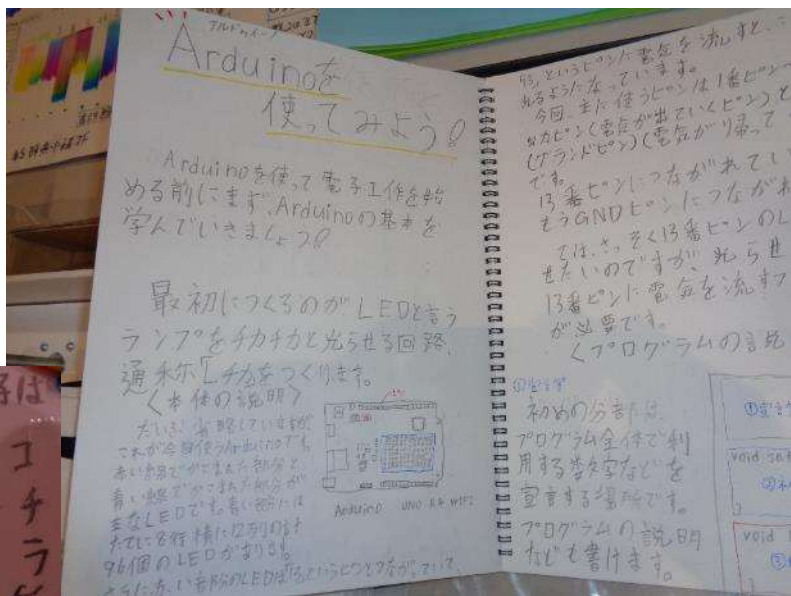 アルドゥイーノ
Arduinoを
使ってみよう!
Arduinoを使って電子工作を始
める前にまず、Arduinoの基本を
学んでいきましょう!
最初につくるのがLEDと言う
ランプをチカチカと光らせる回路、
通称Lチカをつくります。
〈本体の説明〉
だいぶ省略していますが
これが今回使うArduinoです。
赤い線でかこまれた部分と
青い線でかこまれた部分が
主なLEDです。青い部分には
たてに8行横に12列の計
96個のLEDがあります。
Arduino UNO R4 WIFI
さらに赤い部分のLEDは13というピンとつながっていて、
13、というピンに電気を流すと、
光るようになっています。
今回、主に使うピンは1番ピン
出力ピン(電気が出ていくピン)と
(グランドピン)(電気が帰って
です。
13番ピンにつながれてい
もうGNDピンにつながれ
では、さっそく13番ピンのL
せたいのですが、光らせ
13番ピンに電気を流すプ
が必要です。
〈プログラムの説
①宣言部
初めの分部は
プログラム全体で利
用する数字などを
宣言する場所です。
プログラムの説明
なども書けます。
①宣言
void set
}
void l
は
コ
チ
ラ